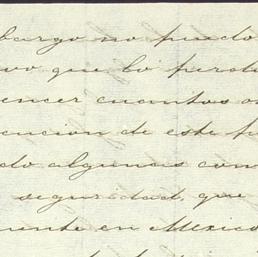 bargo no puedo
vo que lo perdi
encer cuantos o
cucion de este p
do algunas con
seguridad, que
mente en Mexico